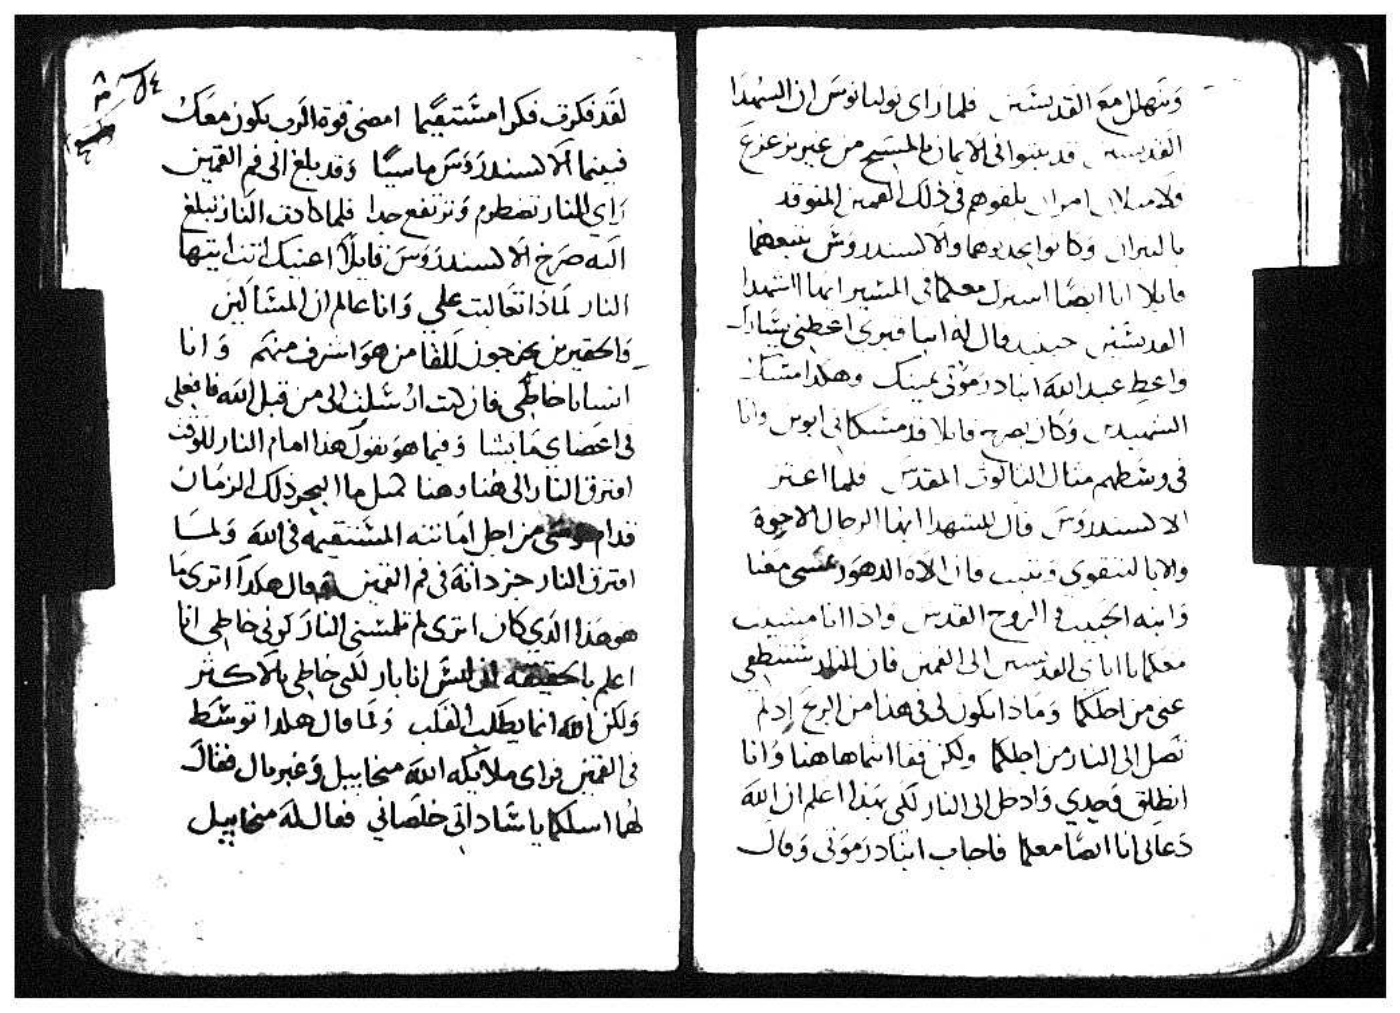 ونتهلل مع القديسين فلما راى يوليانوس ان الشهدا
القديسين قد ثبتوا في الايمان بالمسيح من غير تزعزع
ولا ميلان امر ان يلقوهم في ذلك القمين المتوقد
بالنيران وكانوا يجذبوهما والاكسندروس يتبعهما
قايلا انا ايضا اسيرك معكما في المسير ايها الشهدا
القديسين حينيد قال له ابنا قبري اعطيني يسارك
واعط عبد الله ابنادرموني يمينك وهكذا امتسكا
الشهيدين وكان يصرخ قايلا قد مسكاني ابوين وانا
في وسطهم مثال الثالوث المقدس فلما اعتز
الاكسندروس قال للشهدا ايها الرجال الاخوة
والابا لنتقوى ونثبت فان الاه الدهور يمشي معنا
وابنه الحبيب في الروح القدس واذا انا مشيت
معكما يا اباي القديسين الى القمين فان النار ستنطفي
عني من اجلكما وماذا يكون لي في هذا من الربح اذ لم
تصل الى النار من اجلكما ولكن قفا انتما هاهنا وانا
انطلق وحدي وادخل الى النار لكي بهذا اعلم ان الله
دعاني انا ايضا معكما فاجاب ابنادرموني وقال
لقد فكرت فكرا مستقيما امضي قوة الرب تكون معك
فبينما الاكسندروس ماشيا وقد بلغ الى فم القمين
راي النار تضطرم وترتفع جدا فلما كادت النار تبلغ
اليه صرخ الاكسندروس قايلا اعنيك انت ايتها
النار لماذا تعاليت علي وانا عالم ان المساكين
والحقيرين يخرجون للقا من هو اشرف منهم وانا
انسانا خاطي فان كنت ارسلت الي من قبل الله فافعلي
في اعضاي ما تشا وفيما هو يقول هذا امام النار للوقت
افترق النار الى هنا وهنا كمثل ما البحر ذلك الزمان
قدام موسى من اجل امانته المستقيمه في الله ولما
افترق النار جز دانة في فم القمين وقال هكذا اترى ما
هو هذا الذي كان اترى لم تلمسني النار كوني خاطي انا
اعلم بالحقيقه ان ليس انا بار لكني خاطي بالاكثر
ولكن الله انما يطلب القلب ولما قال هكذا توسط
في القمين فراى ملايكه الله ميخاييل وغبريال فقال
لهما اسلكما يا ساداتي خلصاني فقال له ميخاييل